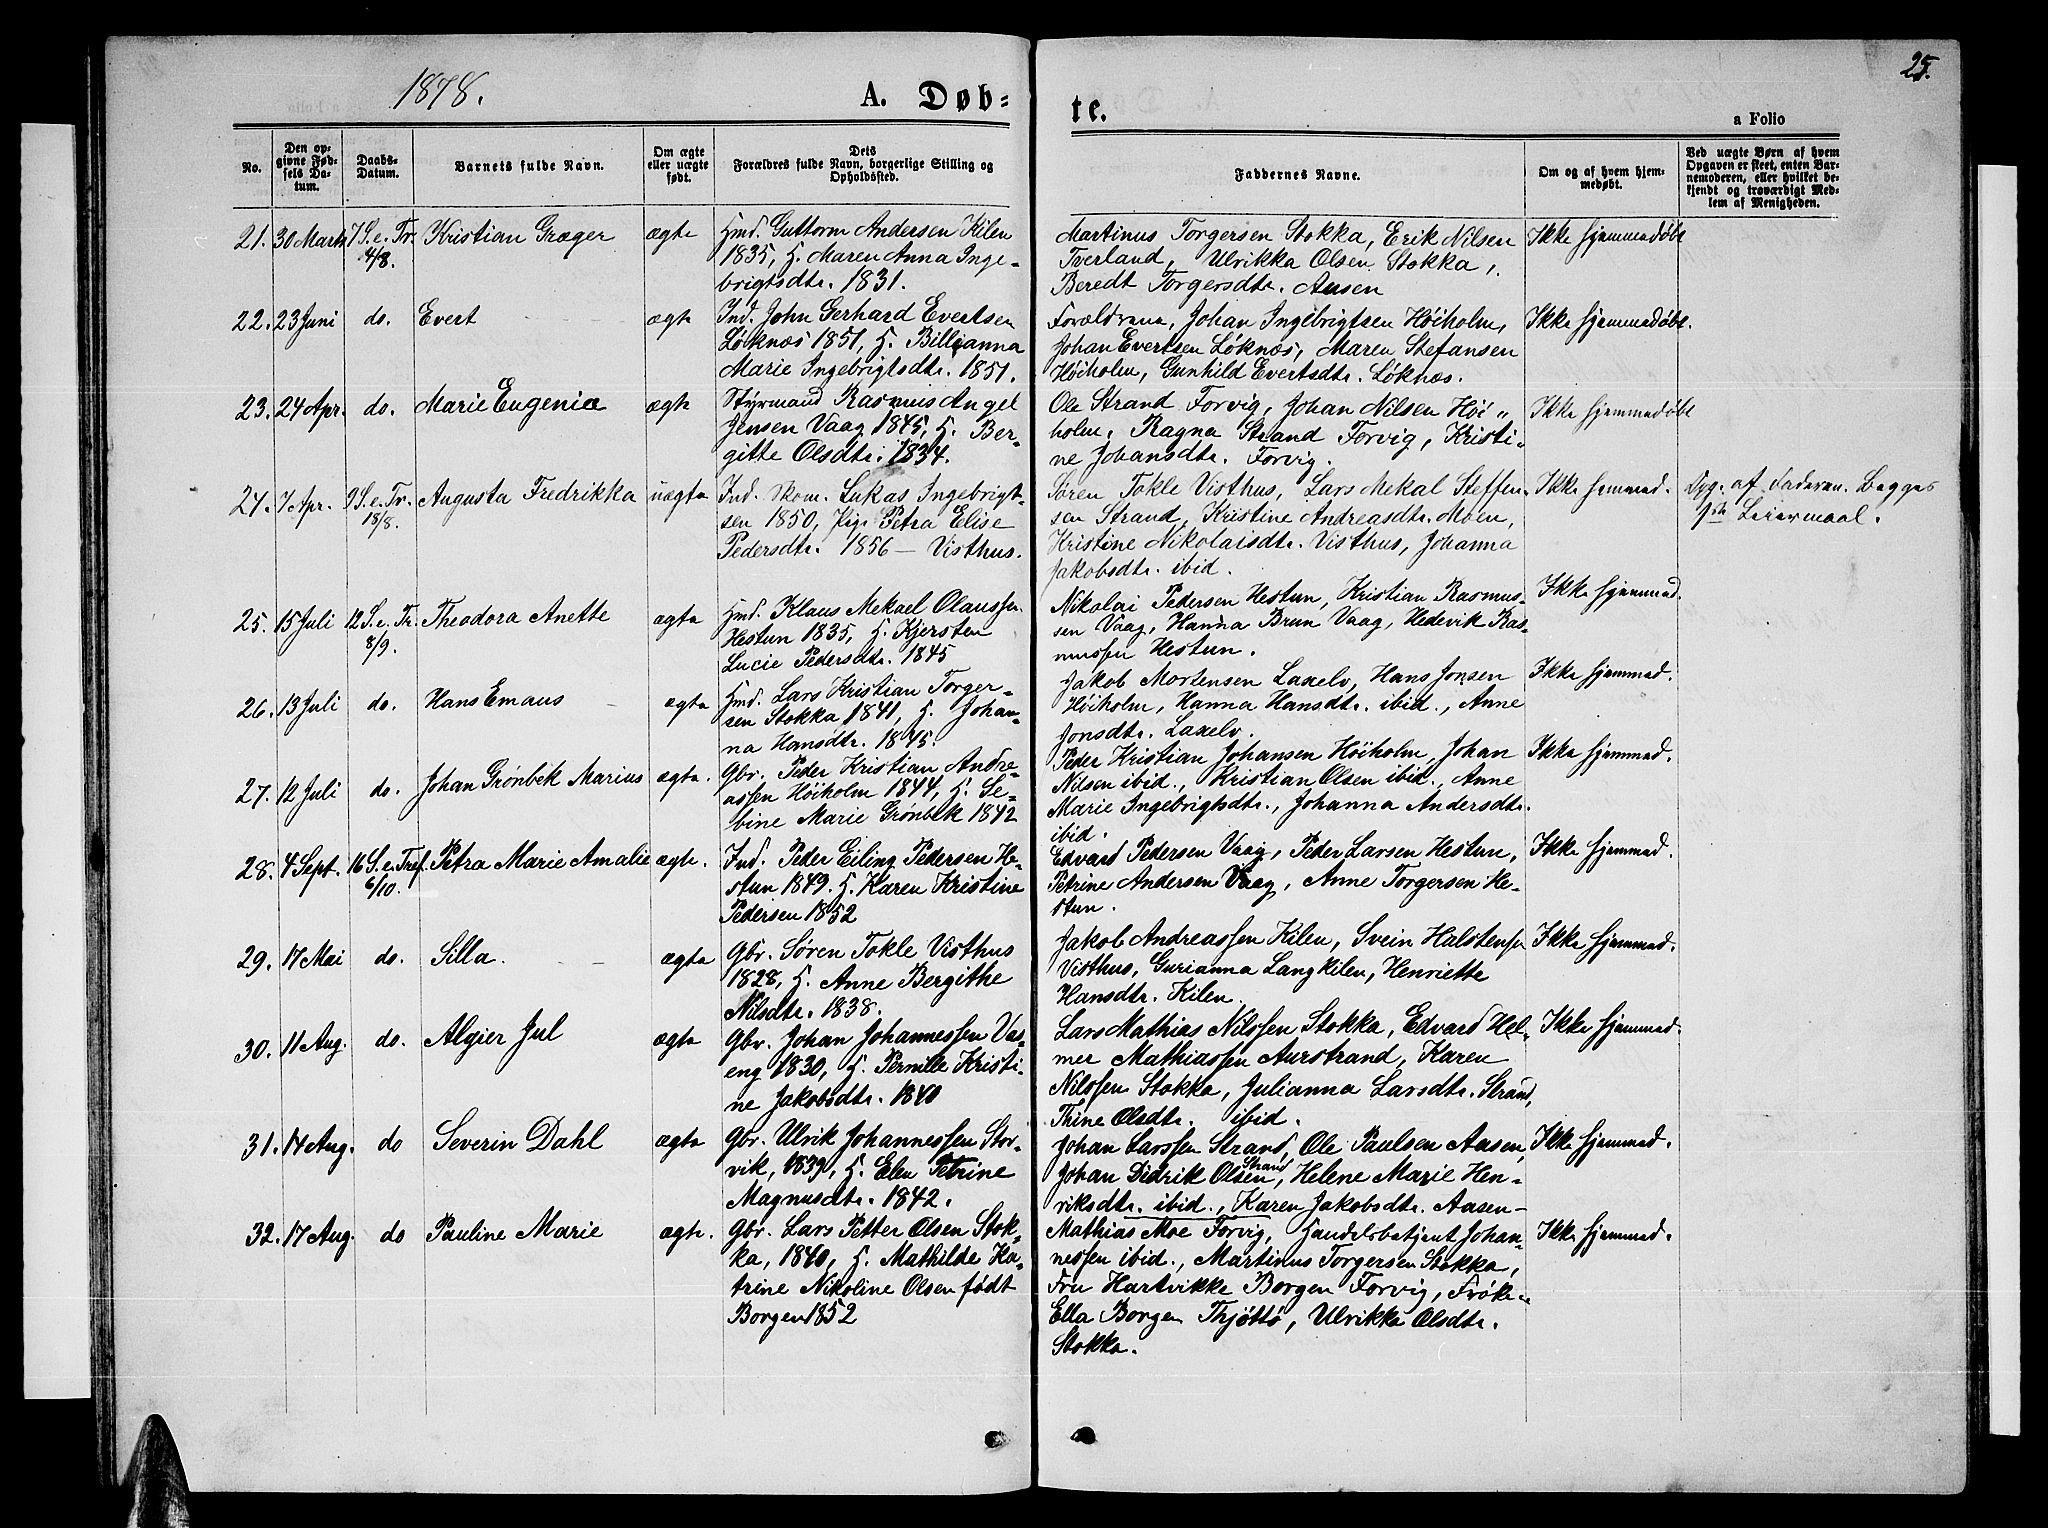 1878.
A. Døb-
te.
25.
a Folio
No.
Den op-
givne Fød-
sels Da-
tum.
Daabs-
Datum.
Barnets fulde Navn.
Om ægte
eller uægte
født.
Dets
Forældres fulde Navn, borgerlige Stilling og
Opholdssted.
Faddernes Navne.
Om og af hvem hjem-
medøbt.
Ved uægte Børn af hvem
Opgaven er skeet, enten Bar-
nemoderen, eller hvilket be-
kjendt og troværdigt Med-
lem af Menigheden.
21. 30 Marts 7 S. e. Tr. Kristian Græger ægte
4/8.
Hmd. Guttorm Andersen Kilen
1835, H. Maren Anna Inge-
brigtsdtr. 1831.
Martinus Torgersen Stokka, Erik Nilsen
Tverland, Ulrikka Olsen Stokka,
Beredt Torgersdtr. Aasen
Ikke hjemmedøbt
22. 23 Juni do. Evert ægte
Ind. John Gerhard Evertsen
Løknæs 1851, H. Billianna
Marie Ingebrigtsdtr. 1851.
Forældrene, Johan Ingebrigtsen Høiholm,
Johan Evertsen Løknæs, Maren Stefansen
Høiholm, Gunhild Evertsdtr. Løknæs.
Ikke hjemmedøbt.
23. 24 Apr. do. Marie Eugenie ægte
Styrmand Rasmus Angel
Jensen Vaag 1845, H. Ber-
gitte Olsdtr. 1834.
Ole Strand Forvig, Johan Nilsen Høi-
holm, Ragna Strand Forvig, Kristi-
ne Johansdtr. Forvig.
Ikke hjemmedøbt
24. 7 Apr. 9 S. e. Tr. Augusta Fredrikka uægte
18/8.
Ind. Skom. Lukas Ingebrigt-
sen 1850, Pige Petra Elise
Pedersdtr. 1856 — Visthus.
Søren Tokle Visthus, Lars Mekal Steffen-
sen Strand, Kristine Andreasdtr. Moen,
Kristine Nikolaisdtr. Visthus, Johanna
Jakobsdtr. ibid.
Ikke hjemmed.
Opg. af Faderen. Begges
1ste Leiermaal.
25. 15 Juli 12 S. e. Tr. Theodora Anette ægte
8/9.
Hmd. Klaus Mekael Olaussen
Hestun 1835, H. Kjersten
Lucie Pedersdtr. 1845
Nikolai Pedersen Hestun, Kristian Rasmus-
sen Vaag, Hanna Brun Vaag, Hedevik Ras-
mussen Hestun.
Ikke hjemmed.
26. 13 Juli do. Hans Emaus ægte
Hmd. Lars Kristian Torger-
sen Stokka 1841, H. Johan-
na Hansdtr. 1845.
Jakob Mortensen Laxelv, Hans Jonsen
Høiholm, Hanna Hansdtr. ibid., Anne
Jonsdtr. Laxelv.
Ikke hjemmed.
27. 12 Juli do. Johan Grønbek Marius ægte.
Gbr. Peder Kristian Andre-
assen Høiholm 1844, H. Se-
bine Marie Grønbek 1842
Peder Kristian Johansen Høiholm, Johan
Nilsen ibid., Kristian Olsen ibid., Anne
Marie Ingebrigtsdtr., Johanna Andersdtr.
ibid.
Ikke hjemmed.
28. 4 Sept. 16 S. e. Tref. Petra Marie Amalie ægte.
6/10.
Ind. Peder Eiling Pedersen He-
stun 1849. H. Karen Kristine
Pedersen 1852
Edvard Pedersen Vaag, Peder Larsen Hestun,
Petrine Andersen Vaag, Anne Torgersen He-
stun.
Ikke hjemmed.
29. 17 Mai do. Silla. ægte
Gbr. Søren Tokle Visthus
1828, H. Anne Bergithe
Nilsdtr. 1838.
Jakob Andreassen Kilen, Svein Halstensen
Visthus, Gurianna Langkilen, Henriette
Hansdtr. Kilen.
Ikke hjemmed.
30. 11 Aug. do. Algier Jul ægte
Gbr. Johan Johannessen Vas-
eng 1830, H. Pernille Kristi-
ne Jakobsdtr. 1840
Lars Mathias Nilssen Stokka, Edvard Hel-
mer Mathiassen Aurstrand, Karen
Nilssen Stokka, Julianna Larsdtr. Strand,
Thrine Olsdtr. ibid.
Ikke hjemmed.
31. 14 Aug. do Severin Dahl ægte
Gbr. Ulrik Johannessen Stor-
vik, 1839, H. Elen Petrine
Magnusdtr. 1842.
Johan Larssen Strand, Ole Paulsen Aasen,
Johan Didrik Olsen Strand, Helene Marie Hen-
riksdtr. ibid., Karen Jakobsdtr. Aasen-
Ikke hjemmed.
32. 17 Aug. do Pauline Marie ægte.
Gbr. Lars Petter Olsen Stok-
ka, 1840, H. Mathilde Ka-
trine Nikoline Olsen født
Borgen 1852
Mathias Moe Forvig, Handelsbetjent Johan-
nessen ibid., Martinus Torgersen Stokka,
Fru Hartvikke Borgen Forvig, Frøken
Ella Borgen Thjøttø, Ulrikka Olsdtr.
Stokka.
Ikke hjemmed.